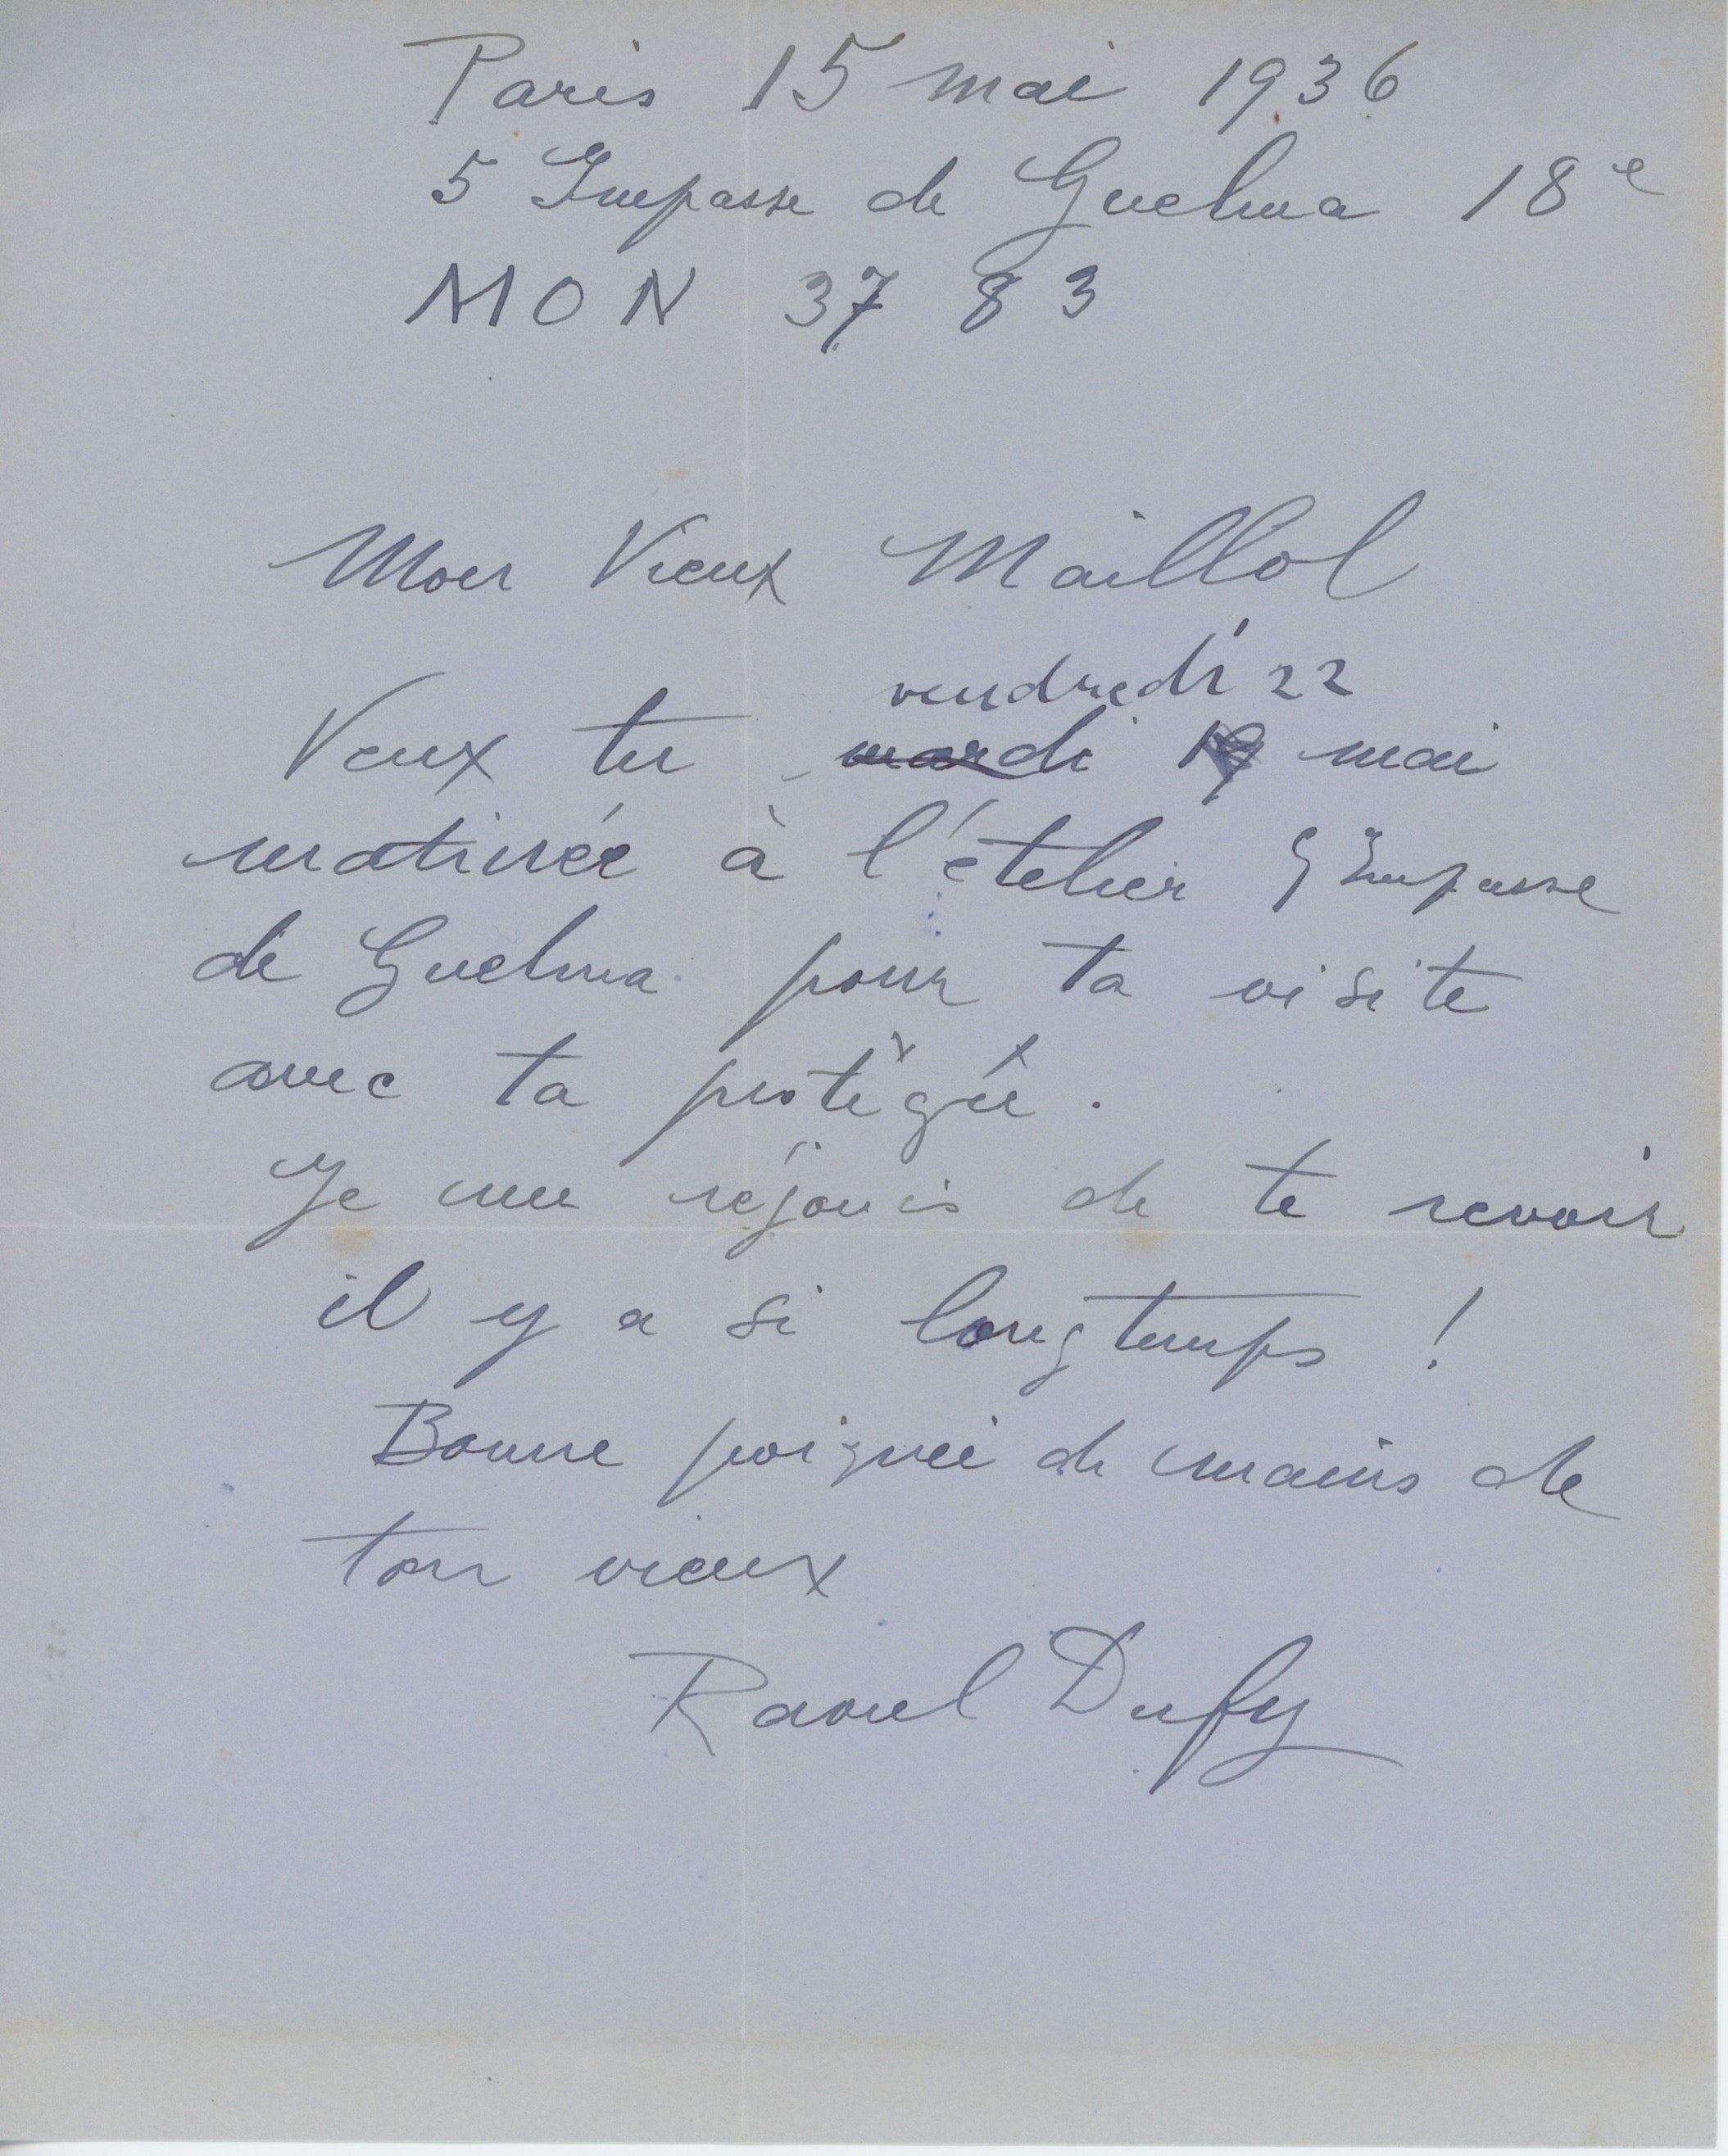 Paris 15 mai 1936
5 Impasse de Guelma 18e
MON 37 83
Mon Vieux Maillol
vendredi 22
Veux tu mardi 19 mai
matinée à l'ételier 5 Impasse
de Guelma pour ta visite
avec ta protégée.
Je me réjouis de te revoir
il y a si longtemps !
Bonne poignée de mains de
ton vieux
Raoul Dufy